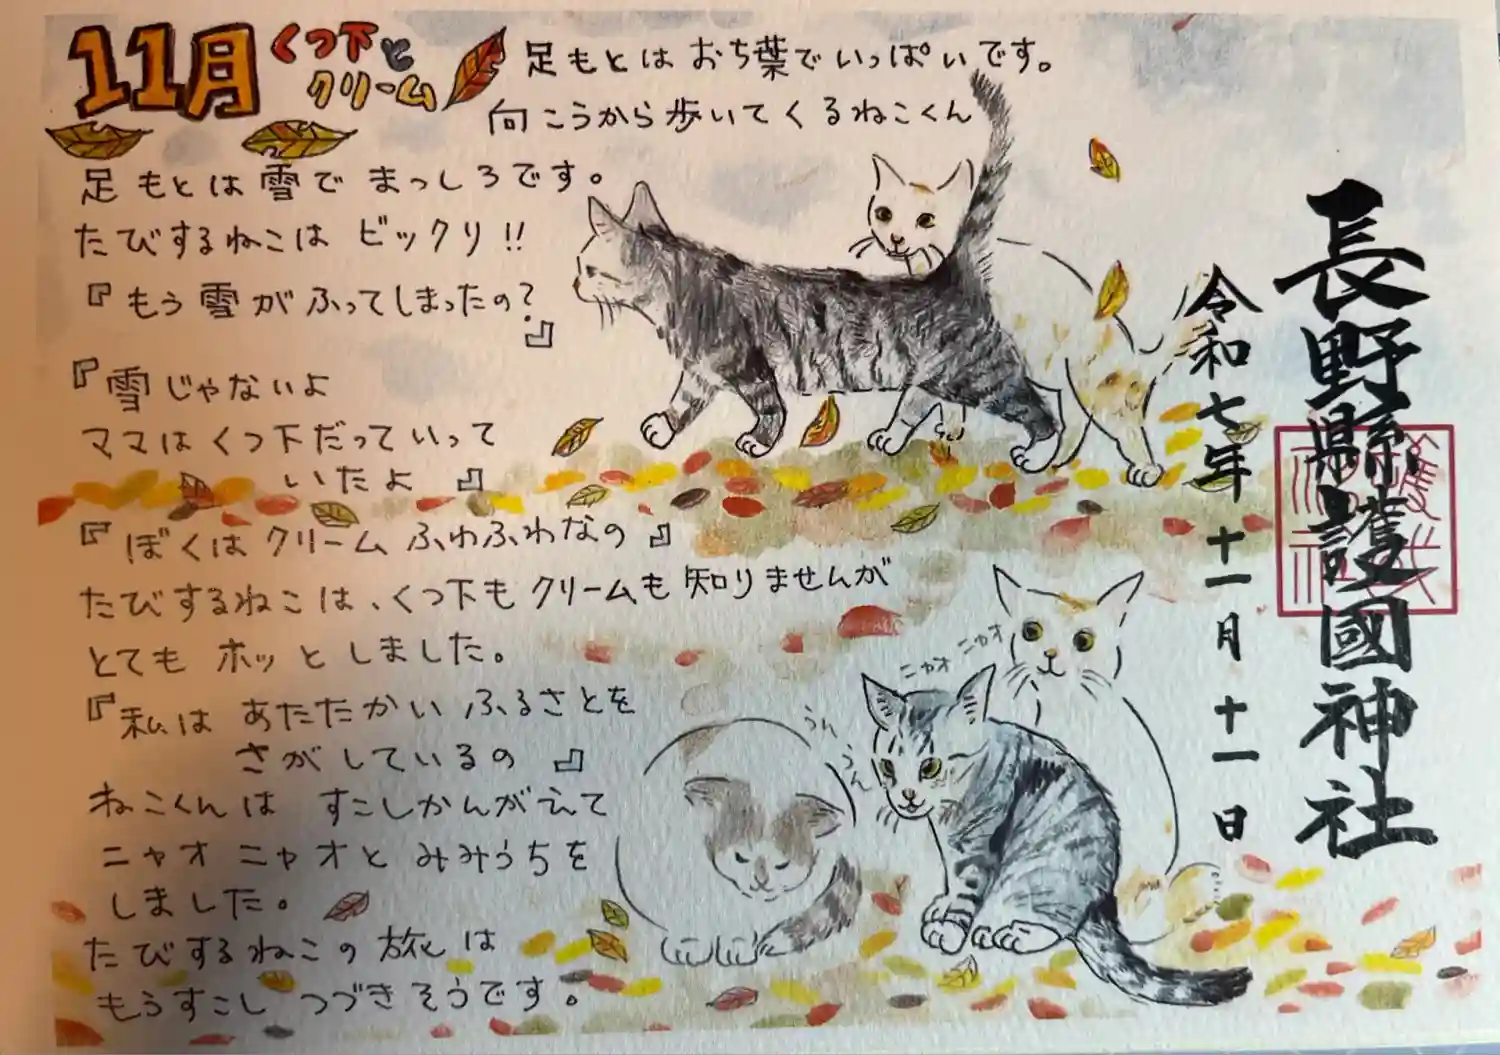 11月
くつ下と
クリーム
足もとはおち葉でいっぱいです。
向こうから歩いてくるねこくん
足もとは雪でまっしろです。
たびするねこは ビックリ!!
『もう雪がふってしまったの?
』
『雪じゃないよ
ママはくつ下だっていって
いたよ 』
『ぼくはクリームふわふわなの』
たびするねこは、くつ下もクリームも知りませんが
とてもホッとしました。
『私は あたたかいふるさとを
さがしているの 』
ねこくんは すこしかんがえて
ニャオ ニャオと みみうちを
しました。
たびするねこの旅は
もうすこし つづきそうです。
ニャオ ニャオ
うん
うん
長野縣護國神社
令和七年 十一月 十一日